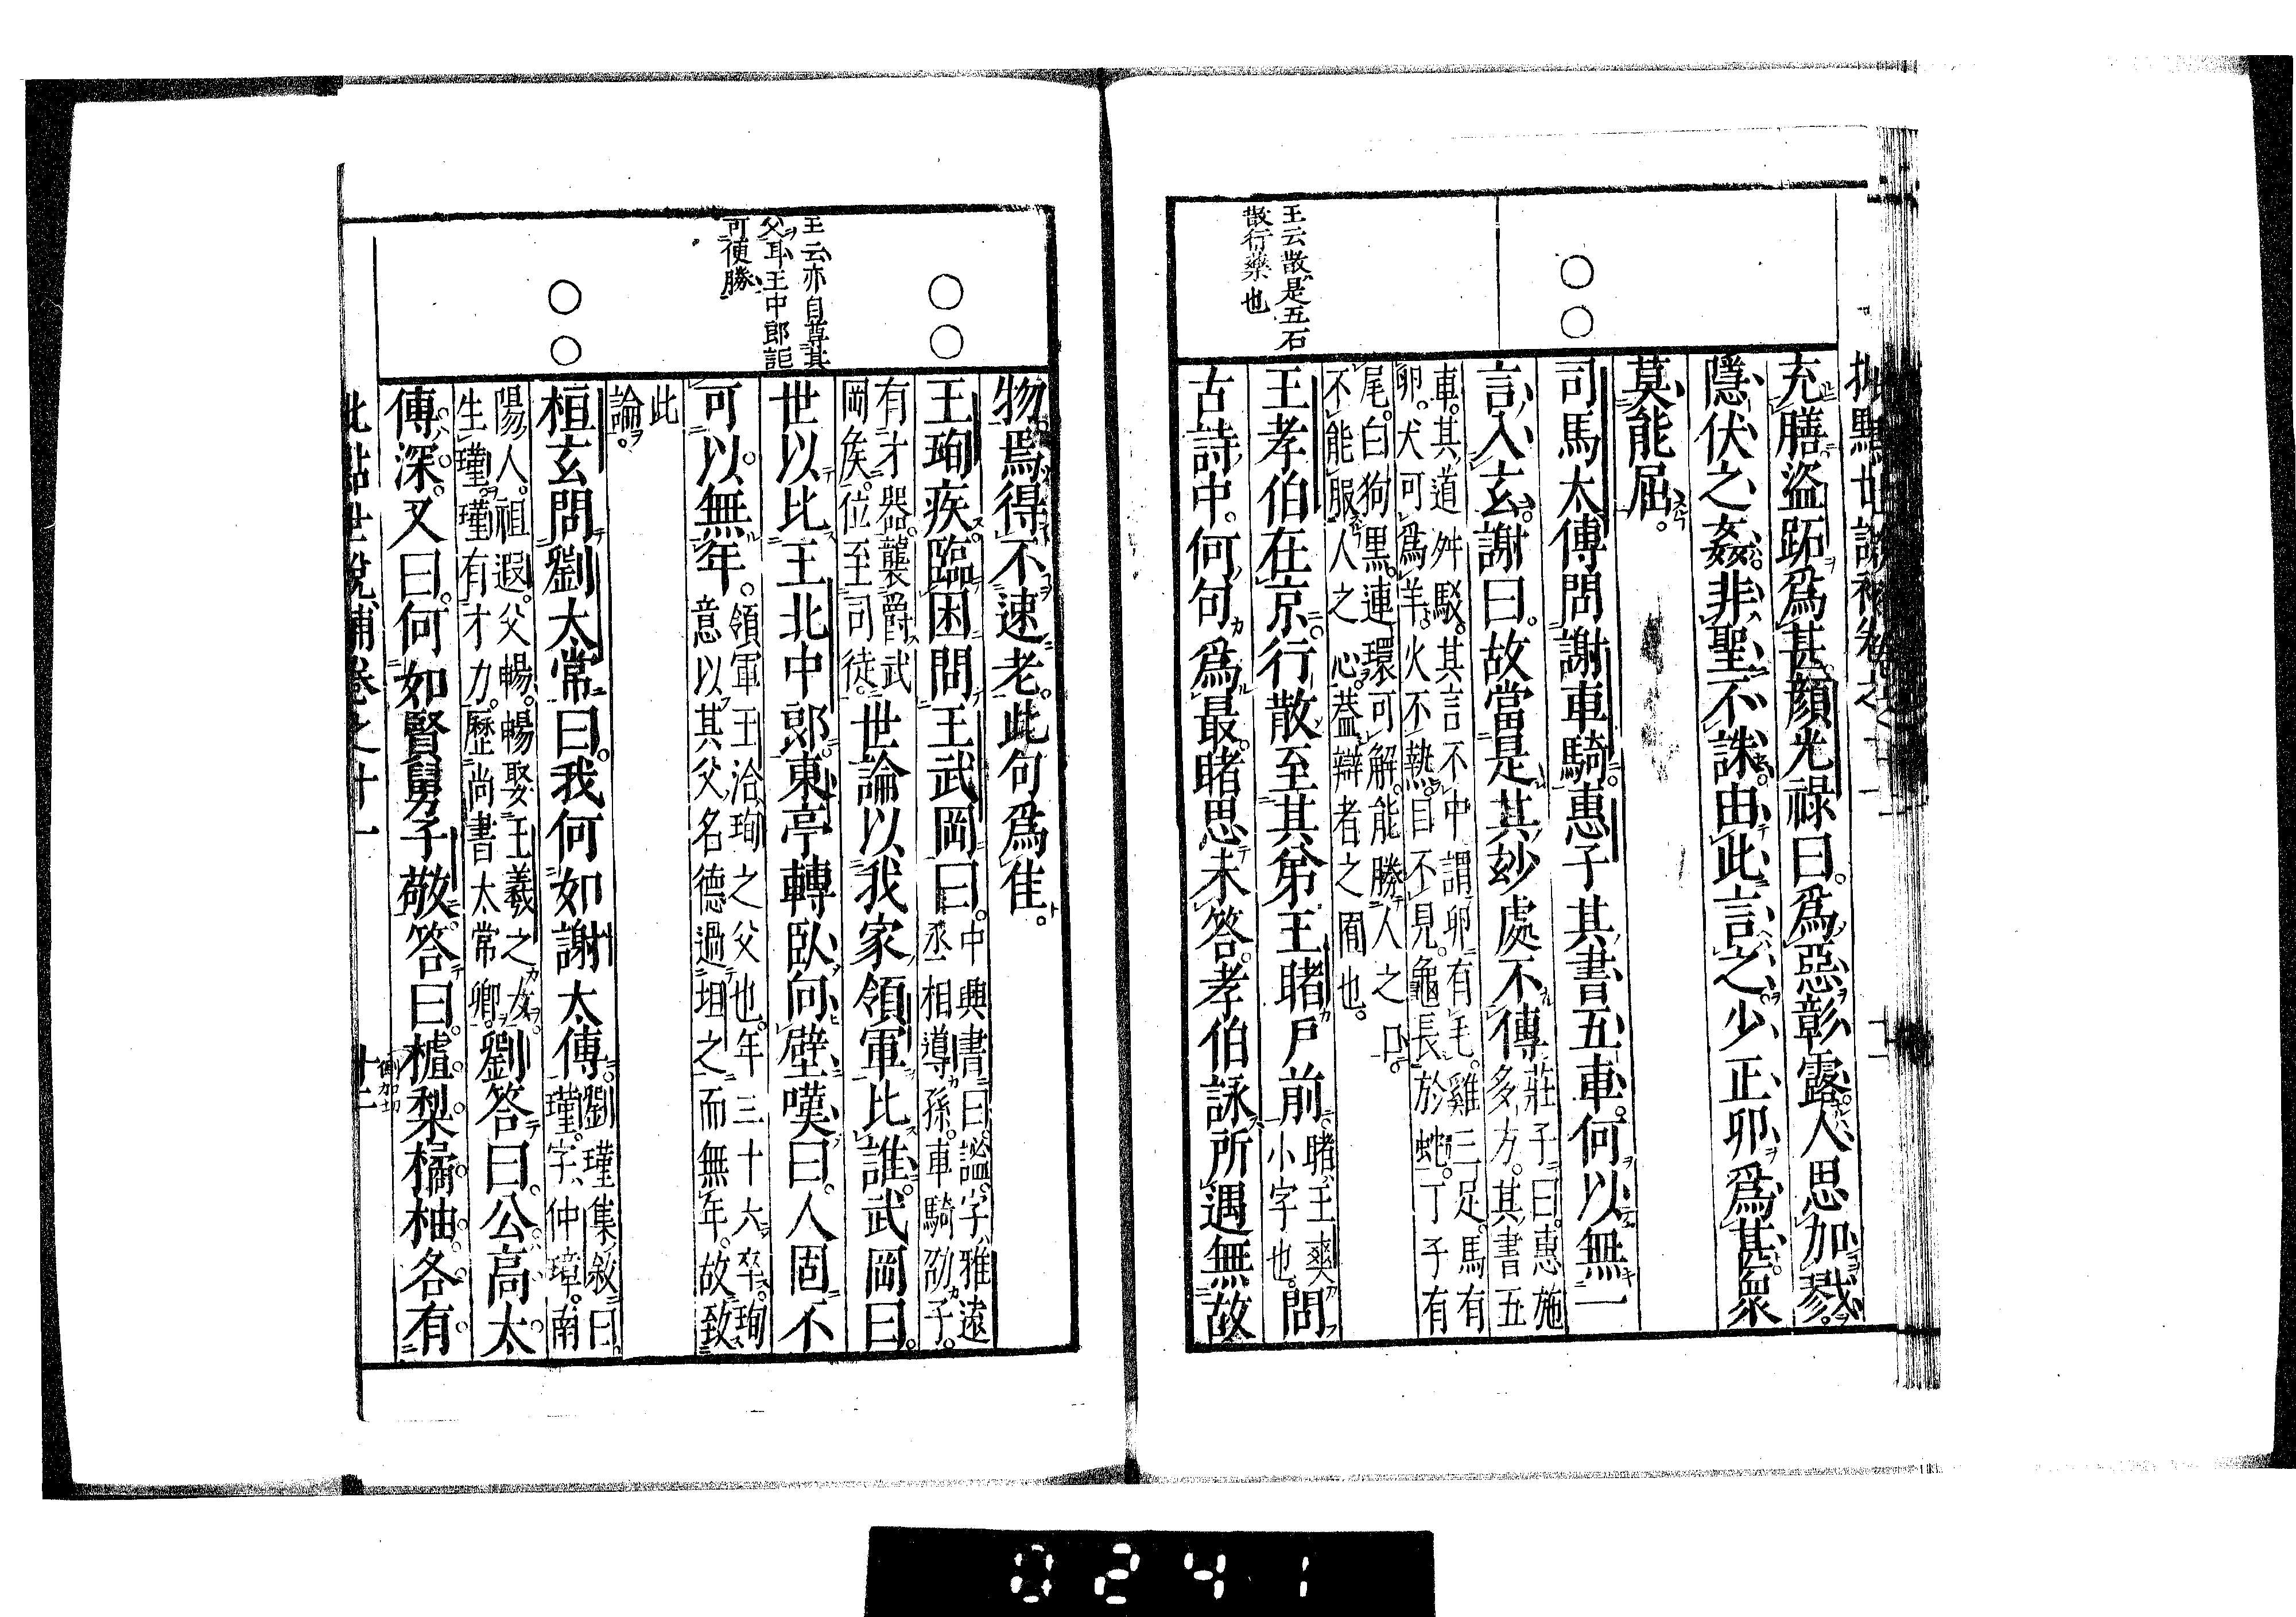 批點世說補卷之十一
充膳。盜跖爲甚。顏光祿曰。爲惡彰露。人思加戮。
隱伏之姦。非聖不誅。由此言之。少正卯爲甚。衆
莫能屈。
司馬太傅問謝車騎。惠子其書五車。何以無一
言入玄。謝曰。故當是其玅處不傳
莊子曰。惠施
多方。其書五
車。其道舛駁。其言不中。謂卵有毛。雞三足。馬有
卵。犬可爲羊。火不熱。目不見。龜長於蛇。丁子有
尾。白狗黑。連環可解。能勝人之口。
不能服人之心。葢辯者之囿也。
王孝伯在京。行散至其弟王睹戶前
睹王爽
小字也。
問
古詩中。何句爲最。睹思未答。孝伯詠所遇無故
王云散是五石
散行藥也
物。焉得不速老。此句爲佳。
王珣疾。臨困問王武岡曰。
中興書曰。謐字雅遠
丞相導孫。車騎劭子。
有才器。襲爵武
岡矦。位至司徒。
世論以我家領軍比誰。武岡曰。
世以比王北中郎。東亭轉臥向壁嘆曰。人固不
可以無年。
領軍王洽。珣之父也。年三十六卒。珣
意以其父名德過坦之而無年。故致
此
論。
王云亦自尊其
父耳王中郎詎
可便勝
桓玄問劉太常曰。我何如謝太傅。
劉瑾集敘曰。
瑾字仲璋。南
陽人。祖遐。父暢。暢娶王羲之女。
生瑾。瑾有才力。歷尚書太常卿。
劉答曰。公高太
傅深。又曰。何如賢舅子敬。答曰。樝梨橘柚各有
批點世說補卷之十一
十二